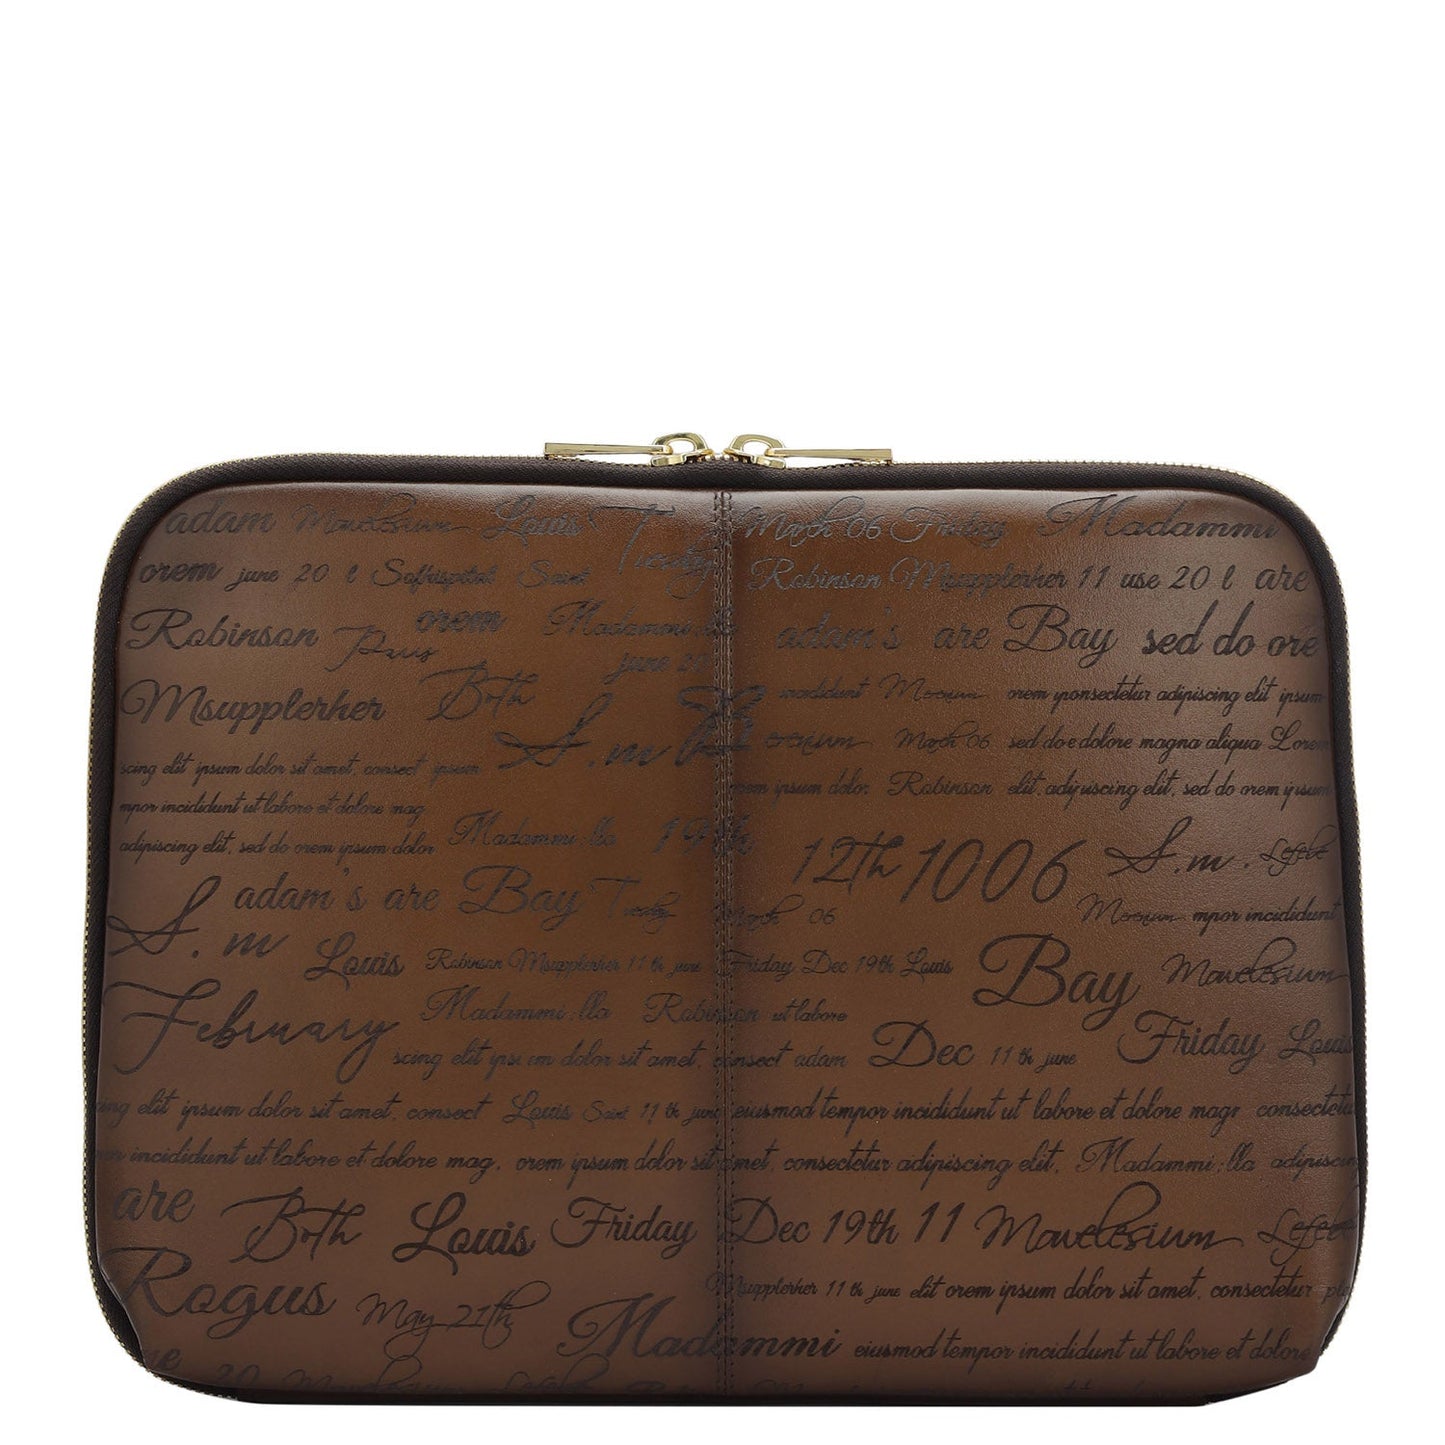 adam Mavelesium Louis Tuesday March 06 Friday Madammi
orem june 20 l Saffuspital Saint Robinson Msupplerher 11 use 20 l are
Robinson Paris orem Madammi;lla adam's are Bay sed do ore
june 20
Msupplerher Both incididunt Mocrium orem yponsectetur adipiscing elit ipsum
S.m B ocrium March 06 sed do e dolore magna aliqua Lorem
scing elit ipsum dolor sit amet, consect ipsum orem ipsum dolor Robinson elit, adipiscing elit, sed do orem ipsum
mpor incididunt ut labore et dolore mag
adipiscing elit, sed do orem ipsum dolor Madammi;lla 19th 12th 1006 S.m. Lefebe
adam's are Bay Tuesday March 06 Mocrium mpor incididunt
S.m Louis Robinson Msupplerher 11 th june Friday Dec 19th Louis Bay Mavelesium
February Madammi;lla Robinson ut labore
scing elit ipsum dolor sit amet, consect adam Dec 11 th june Friday Louis
ing elit ipsum dolor sit amet, consect Louis Saint 11 th june eiusmod tempor incididunt ut labore et dolore magr consectetu
r incididunt ut labore et dolore mag, orem ipsum dolor sit amet, consectetur adipiscing elit, Madammi;lla adipiscin
are Both Louis Friday Dec 19th 11 Mavelesium Lefebe
Rogus May 21th Msupplerher 11 th june elit orem ipsum dolor sit amet, consectetur
Madammi eiusmod tempor incididunt ut labore et dolore
20